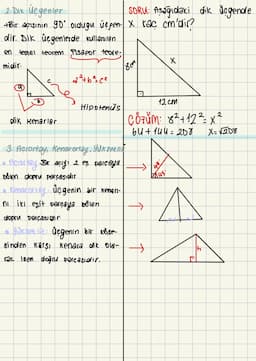 2. Dik Üçgenler
•Bir açısının 90° olduğu üçgen-
dir. Dik üçgenlerde kullanılan
en temel teorem Pisagor teore-
midir.
a
b
c
a²+b²=c²
Hipotenüs
dik kenarlar
SORU: Aşağıdaki dik üçgende
X kaç cm'dir?
x
12cm
ÇÖZÜM: 8²+12²= x²
64 + 144 = 208 X=√208
3. Açıortay, Kenarortay, Yükseklik
• Açıortay: Bir açıyı 2 eş parçaya
bölen doğru parçasıdır
• Kenarortay: Üçgenin bir kenarı-
nı iki eşit parçaya bölen
doğru parçasıdır
• Yükseklik: Üçgenin bir köşe-
sinden karşı kenara dik ola-
rak inen doğru parçasıdır.
h